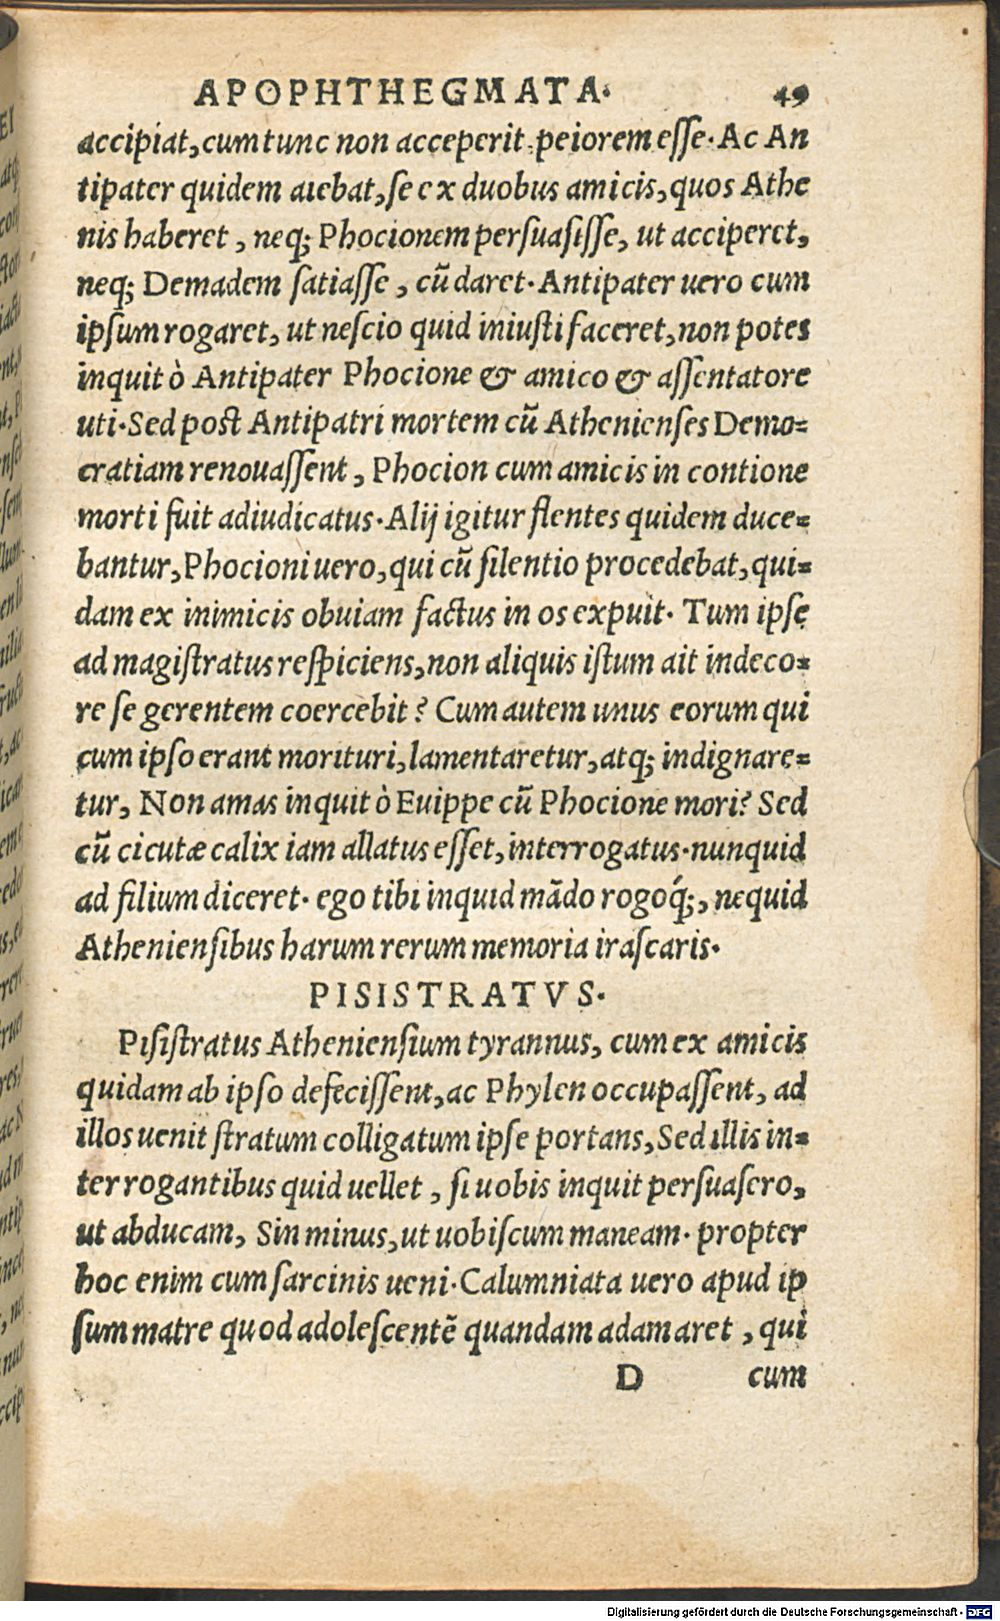 APOPHTHEGMATA. 49
accipiat, cum tunc non acceperit peiorem esse. Ac An
tipater quidem aiebat, se ex duobus amicis, quos Athe
nis haberet, neq; Phocionem persuasisse, ut acciperet,
neq; Demadem satiasse, cū daret. Antipater uero cum
ipsum rogaret, ut nescio quid iniusti faceret, non potes
inquit ò Antipater Phocione & amico & assentatore
uti. Sed post Antipatri mortem cū Athenienses Demo=
cratiam renouassent, Phocion cum amicis in contione
morti fuit adiudicatus. Alij igitur flentes quidem duce=
bantur, Phocioni uero, qui cū silentio procedebat, qui=
dam ex inimicis obuiam factus in os expuit. Tum ipse
ad magistratus respiciens, non aliquis istum ait indeco=
re se gerentem coercebit? Cum autem unus eorum qui
cum ipso erant morituri, lamentaretur, atq; indignare=
tur, Non amas inquit ò Euippe cū Phocione mori? Sed
cū cicutæ calix iam allatus esset, interrogatus. nunquid
ad filium diceret. ego tibi inquid mādo rogoq́;, nequid
Atheniensibus harum rerum memoria irascaris.
PISISTRATVS.
Pisistratus Atheniensium tyrannus, cum ex amicis
quidam ab ipso defecissent, ac Phylen occupassent, ad
illos uenit stratum colligatum ipse portans, Sed illis in=
terrogantibus quid uellet, si uobis inquit persuasero,
ut abducam, Sin minus, ut uobiscum maneam. propter
hoc enim cum sarcinis ueni. Calumniata uero apud ip
sum matre quod adolescentē quandam adamaret, qui
D cum
Digitalisierung gefördert durch die Deutsche Forschungsgemeinschaft - DFG